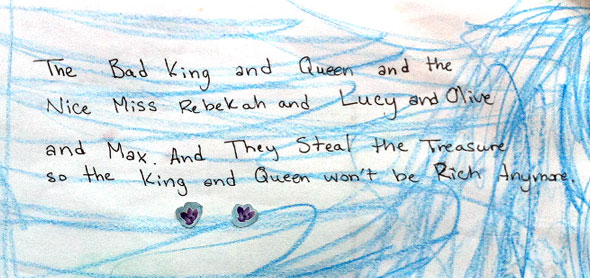 The Bad King and Queen and the
Nice Miss Rebekah and Lucy and Olive
and Max. And They Steal the Treasure
so the King and Queen won't be Rich Anymore.